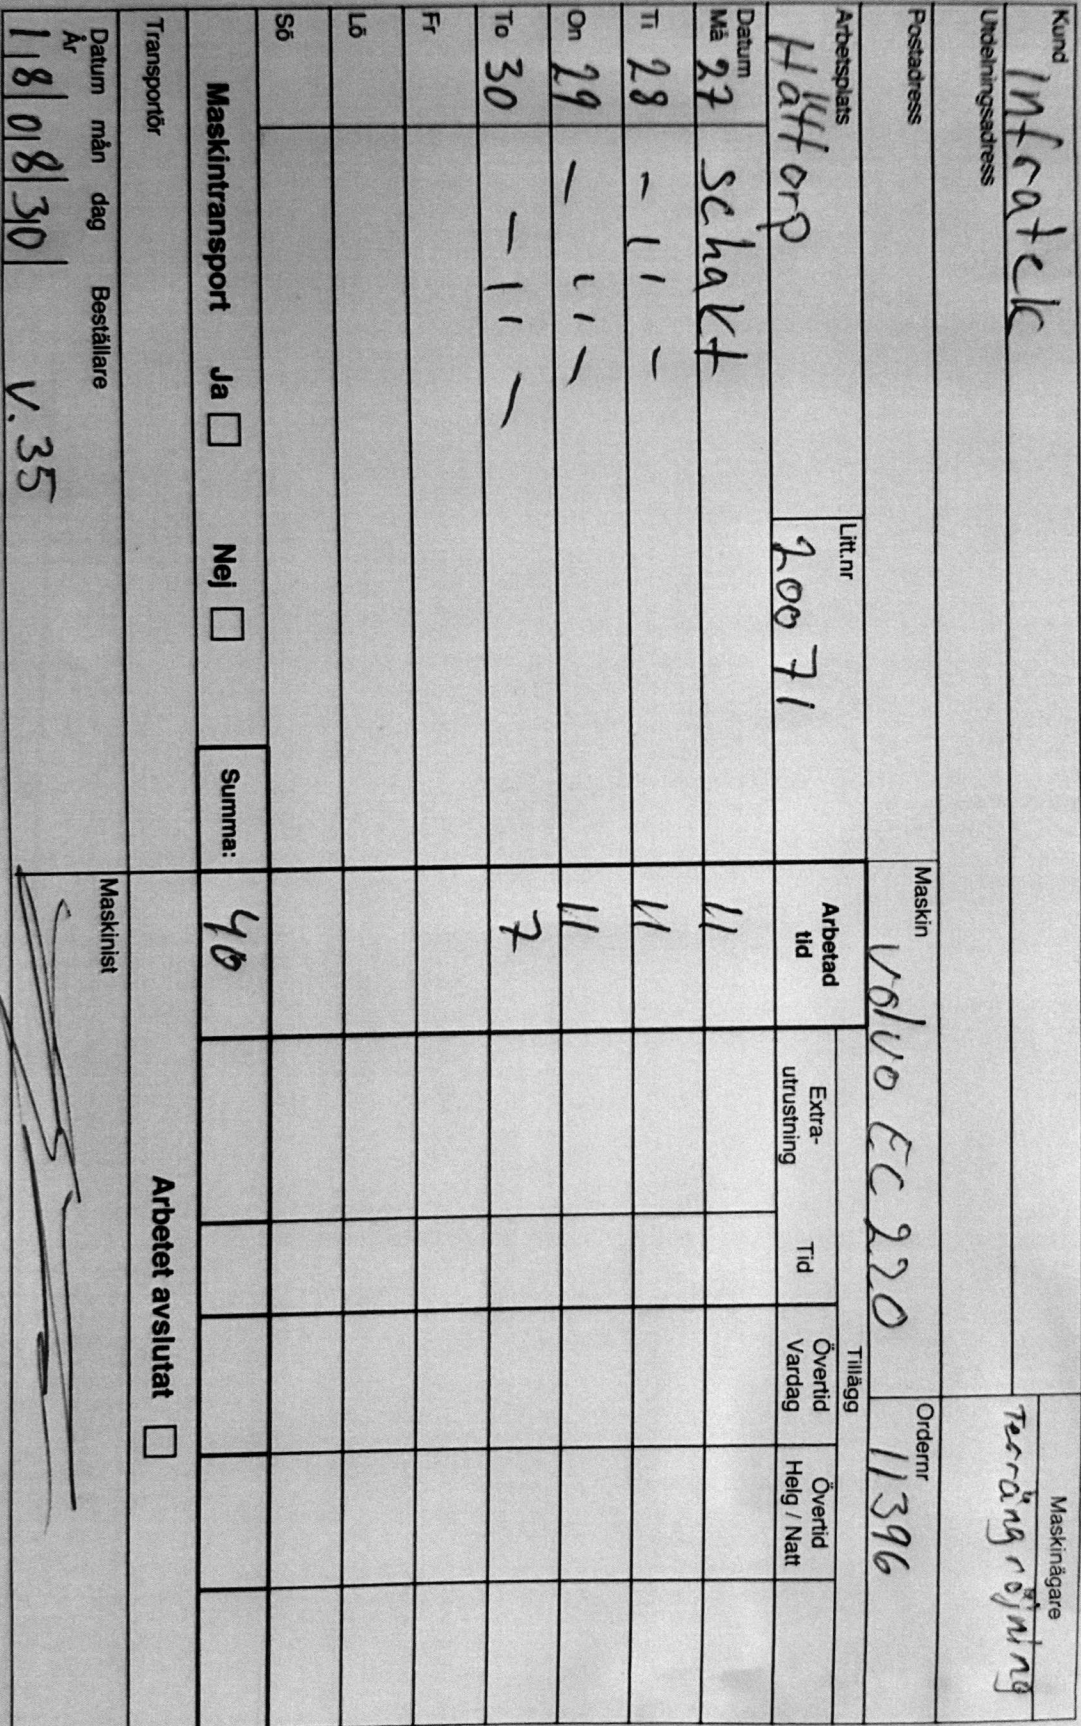 Kund Infratek
Maskinägare
Terrängröjning
Utdelningsadress
Postadress
Maskin Volvo EC 220
Ordernr 11396
Arbetsplats Hättorp
Litt.nr 20071
Arbetad tid
Tillägg
Extra-utrustning Tid Övertid Vardag Övertid Helg / Natt
Datum
Må 27 schakt 11
Ti 28 - 11 - 11
On 29 - 11 - 11
To 30 - 11 - 7
Fr
Lö
Sö
Maskintransport Ja Nej Summa: 40
Transportör
Arbetet avslutat
Datum mån dag Beställare Maskinist
År
180830 v.35